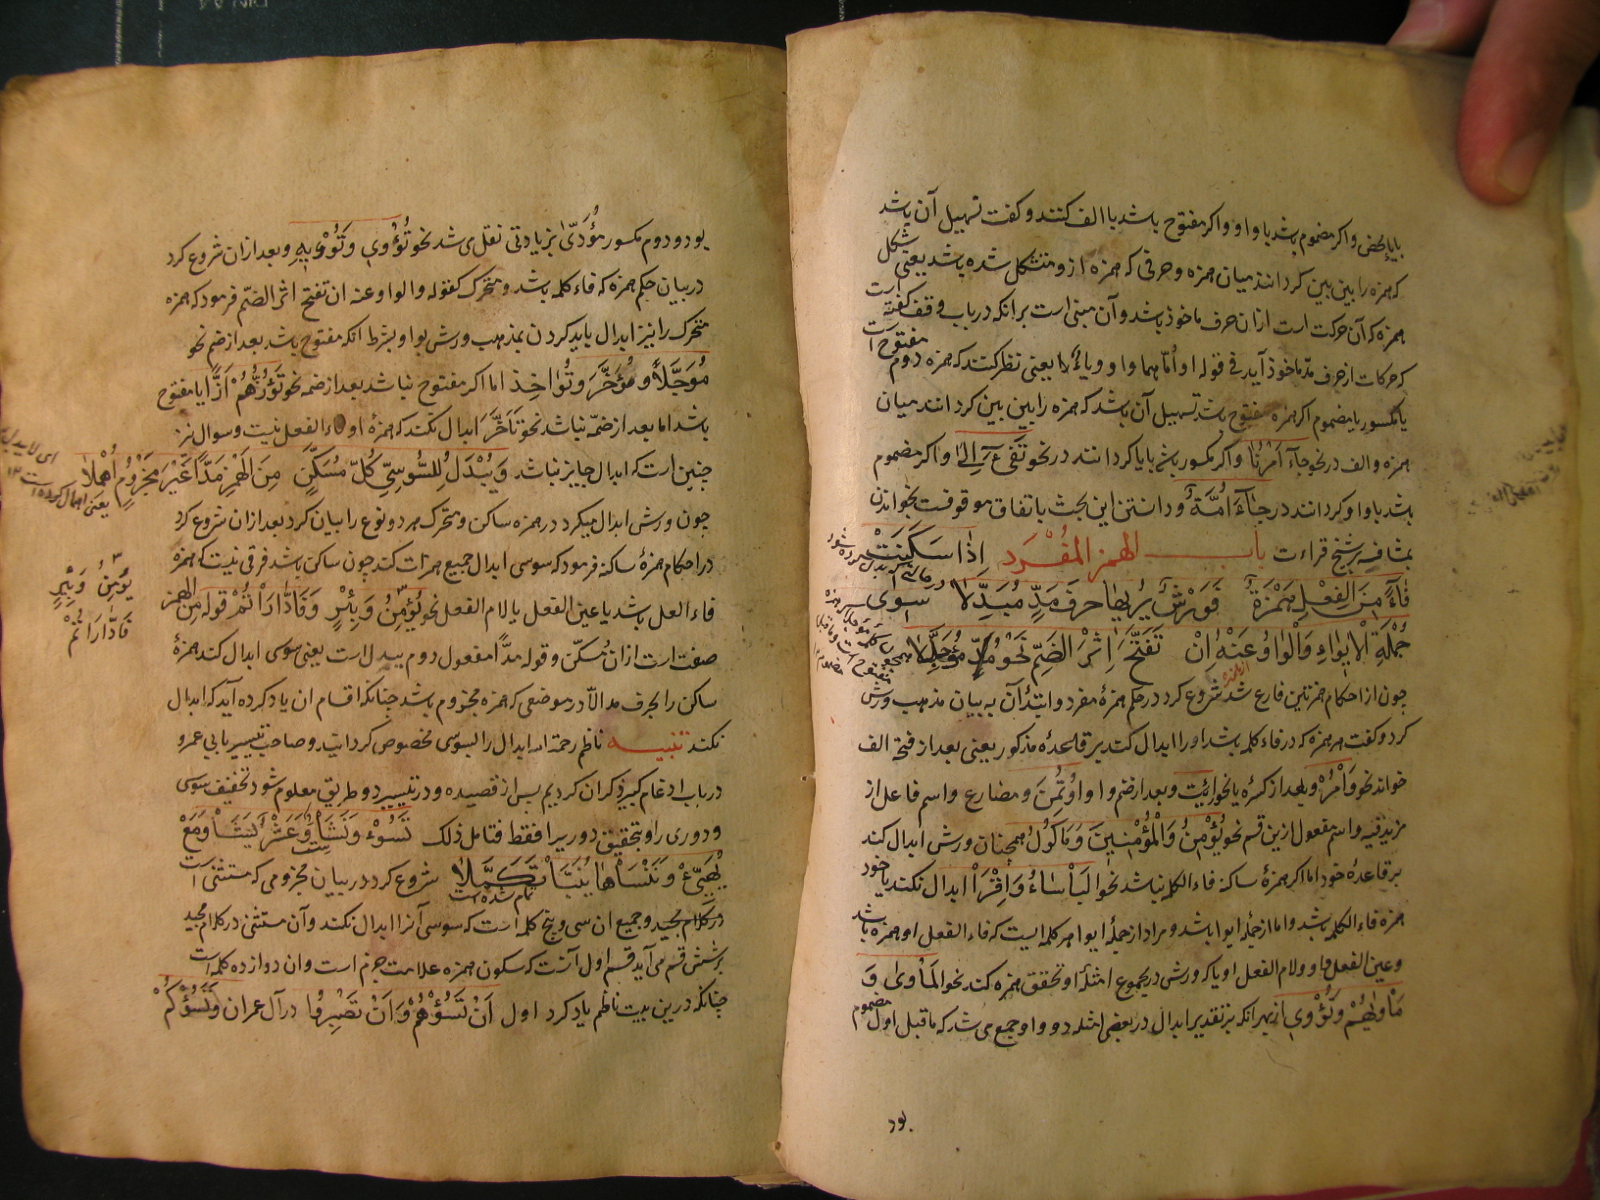 بیا محض و اکر مضموم باشد با واو و اکر مفتوح باشد با الف کنند و کفت تسهیل آن باشد
که همزه را بین بین کردانند میان همزه و حرفی که همزه ازو متشکل شده باشد یعنی شکل
همزه که آن حرکت است ازان حرف ماخوذ باشد و آن مبنی است برانکه در باب وقف کفته است
که حرکات از حرف مد ماخوذ آید فی قوله او امّاهما واو ویاء یعنی نظر کنند که همزه دوم مفتوح است
یا مکسور یا مضموم اکر همزه مفتوح باشد تسهیل آن باشد که همزه را بین بین کردانند میان
همزه و الف در نحو جآءَ اَمْرُنَا و اکر مکسور باشد با یا کردانند در نحو تَفِیءَ اِلیٰ و اکر مضموم
باشد با واو کردانند در جَآءَ اُمَّةً و دانستن این بحث باتفاق موقوفست بخواندن
بمشافهه بر شیخ قراءت باب الهمز المفرد اِذَا سَکَنَتْ
فَاءً مِنَ الفِعْلِ هَمْزَةٌ فَوَرْشٌ یُرِیهَا حرفَ مَدٍّ مُبَدِّلَا سِوَی
جُمْلَةِ الْاِیْوَاءِ وَالْوَاوُ عَنْهُ اِنْ تَفَتَّحَ اِثْرَ الضَّمِّ نَحْوُ مُؤَجَّلَا
چون از احکام همزتین فارغ شد شروع کرد در حکم همزهٔ مفرد و ابتداء آن به بیان مذهب ورش
کرد و کفت هر همزه که در فاء کلمه باشد او را ابدال کند بر قاعدهٔ مذکور یعنی بعد از فتحه الف
خواند نحو وَأْمُرْ و بعد از کسره یا نحو ائْتِ و بعد از ضم واو اؤْتُمِنَ و مضارع و اسم فاعل از
مزید فیه و اسم مفعول ازین قسم نحو یُؤْمِنُ وَالْمُؤْمِنِینَ وَمَأْکُولٍ همچنان ورش ابدال کند
بر قاعدهٔ خود اما اکر همزهٔ ساکنه فاء الکلمه نباشد نحو البَأْسَاءُ وَاقْرَأْ ابدال نکند یا خود
همزه فاء الکلمه باشد و اما از جملهٔ ایوا باشد و مراد از جملهٔ ایوا هر کلمه ایست که فاء الفعل او همزه باشد
و عین الفعل واو ولام الفعل او یا که ورش در مجموع امثلهٔ او تحقیق همزه کند نحو المَأْوَیٰ وَ
مَأْوٰیهُمْ وَتُؤْوِی از بهر انکه بر تقدیر ابدال در بعضی امثله دو واو جمع می شد که ماقبل اول مضموم
بود
بود و دوم مکسور مؤدّی بزیادتی نقل می شد نحو تُؤْوِی وَتُؤْوِیهِ و بعد ازان شروع کرد
در بیان حکم همزه که فاء کلمه باشد و متحرک کقوله والواو عنه ان تفتح اثر الضّم فرمود که همزه
متحرک را نیز ابدال باید کردن بمذهب ورش بواو بشرط انکه مفتوح باشد بعد از ضم نحو
مُوَجَّلاً و مُؤَخَّرَ وَتُوَاخِذ اما اکر مفتوح نباشد بعد از ضمه نحو تَؤُزُّهُمْ اَزًّا یا مفتوح
باشد اما بعد از ضمّه نباشد نحو تَأَخَّرَ ابدال نکند که همزهٔ او فاء الفعل نیست وسوال نیز
چنین است که ابدال جایز نباشد وَیُبْدَلُ لِلسُّوسِیِّ کُلُّ مُسَکَّنٍ مِنَ الْهَمْزِ مَدًّا غَیْرَ مَجْزُومٍ اُهْمِلَا
چون ورش ابدال میکرد در همزه ساکن و متحرک هر دو نوع را بیان کرد بعد ازان شروع کرد
در احکام همزهٔ ساکنه فرمود که سوسی ابدال جمیع همزات کند چون ساکن باشد فرقی نیست که همزه
فاء الفعل باشد یا عین الفعل یا لام الفعل نحو یُؤْمِنُ وَبِئْرٍ وَفَادّٰارَأْتُمْ قوله من الهمز
صفت است ازان مُسَکَّن و قوله مدًّا مفعول دوم یبدل است یعنی سوسی ابدال کند همزهٔ
ساکن را بحرف مد الّا در موضعی که همزه مجزوم باشد چنانکه اقسام ان یاد کرده آید که ابدال
نکند تنبیه ناظم رحمه الله ابدال را بسوسی مخصوص کردانید و صاحب تیسیر بابی عمرو
در باب ادغام کبیر ذکر ان کردیم پس از قصیده و در تیسیر دو طریق معلوم شود تخفیف سوسی
و دوری را و بتحقیق دوری را فقط فتامل ذلک تَسُؤْ وَنَشَأْ سِتٌّ وَعَشْرٌ یَشَأْ وَمَعْ
یُهَیِّئْ وَنَنْسَأْهَا یُنَبَّأْ تَکَمَّلَا شروع کرد در بیان مجزومی که مستثنی است
در کلام مجید و جمیع ان سی و پنج کلمه است که سوسی آنرا ابدال نکند و آن مستثنی در کلام مجید
بر شش قسم می آید قسم اول آنست که سکون همزه علامت جزم است وان دوازده کلمه است
چنانکه درین بیت ناظم یاد کرد اول اَنْ تَسُؤْهُمْ وَاَنْ تَصْبِرُوا در آل عمران وَتَسُؤْکُمْ
تمام شده است
یعنی اهمال کرده است
یُوْمِنُ وَبِیْرٍ
فَادّٰارَاتُمْ